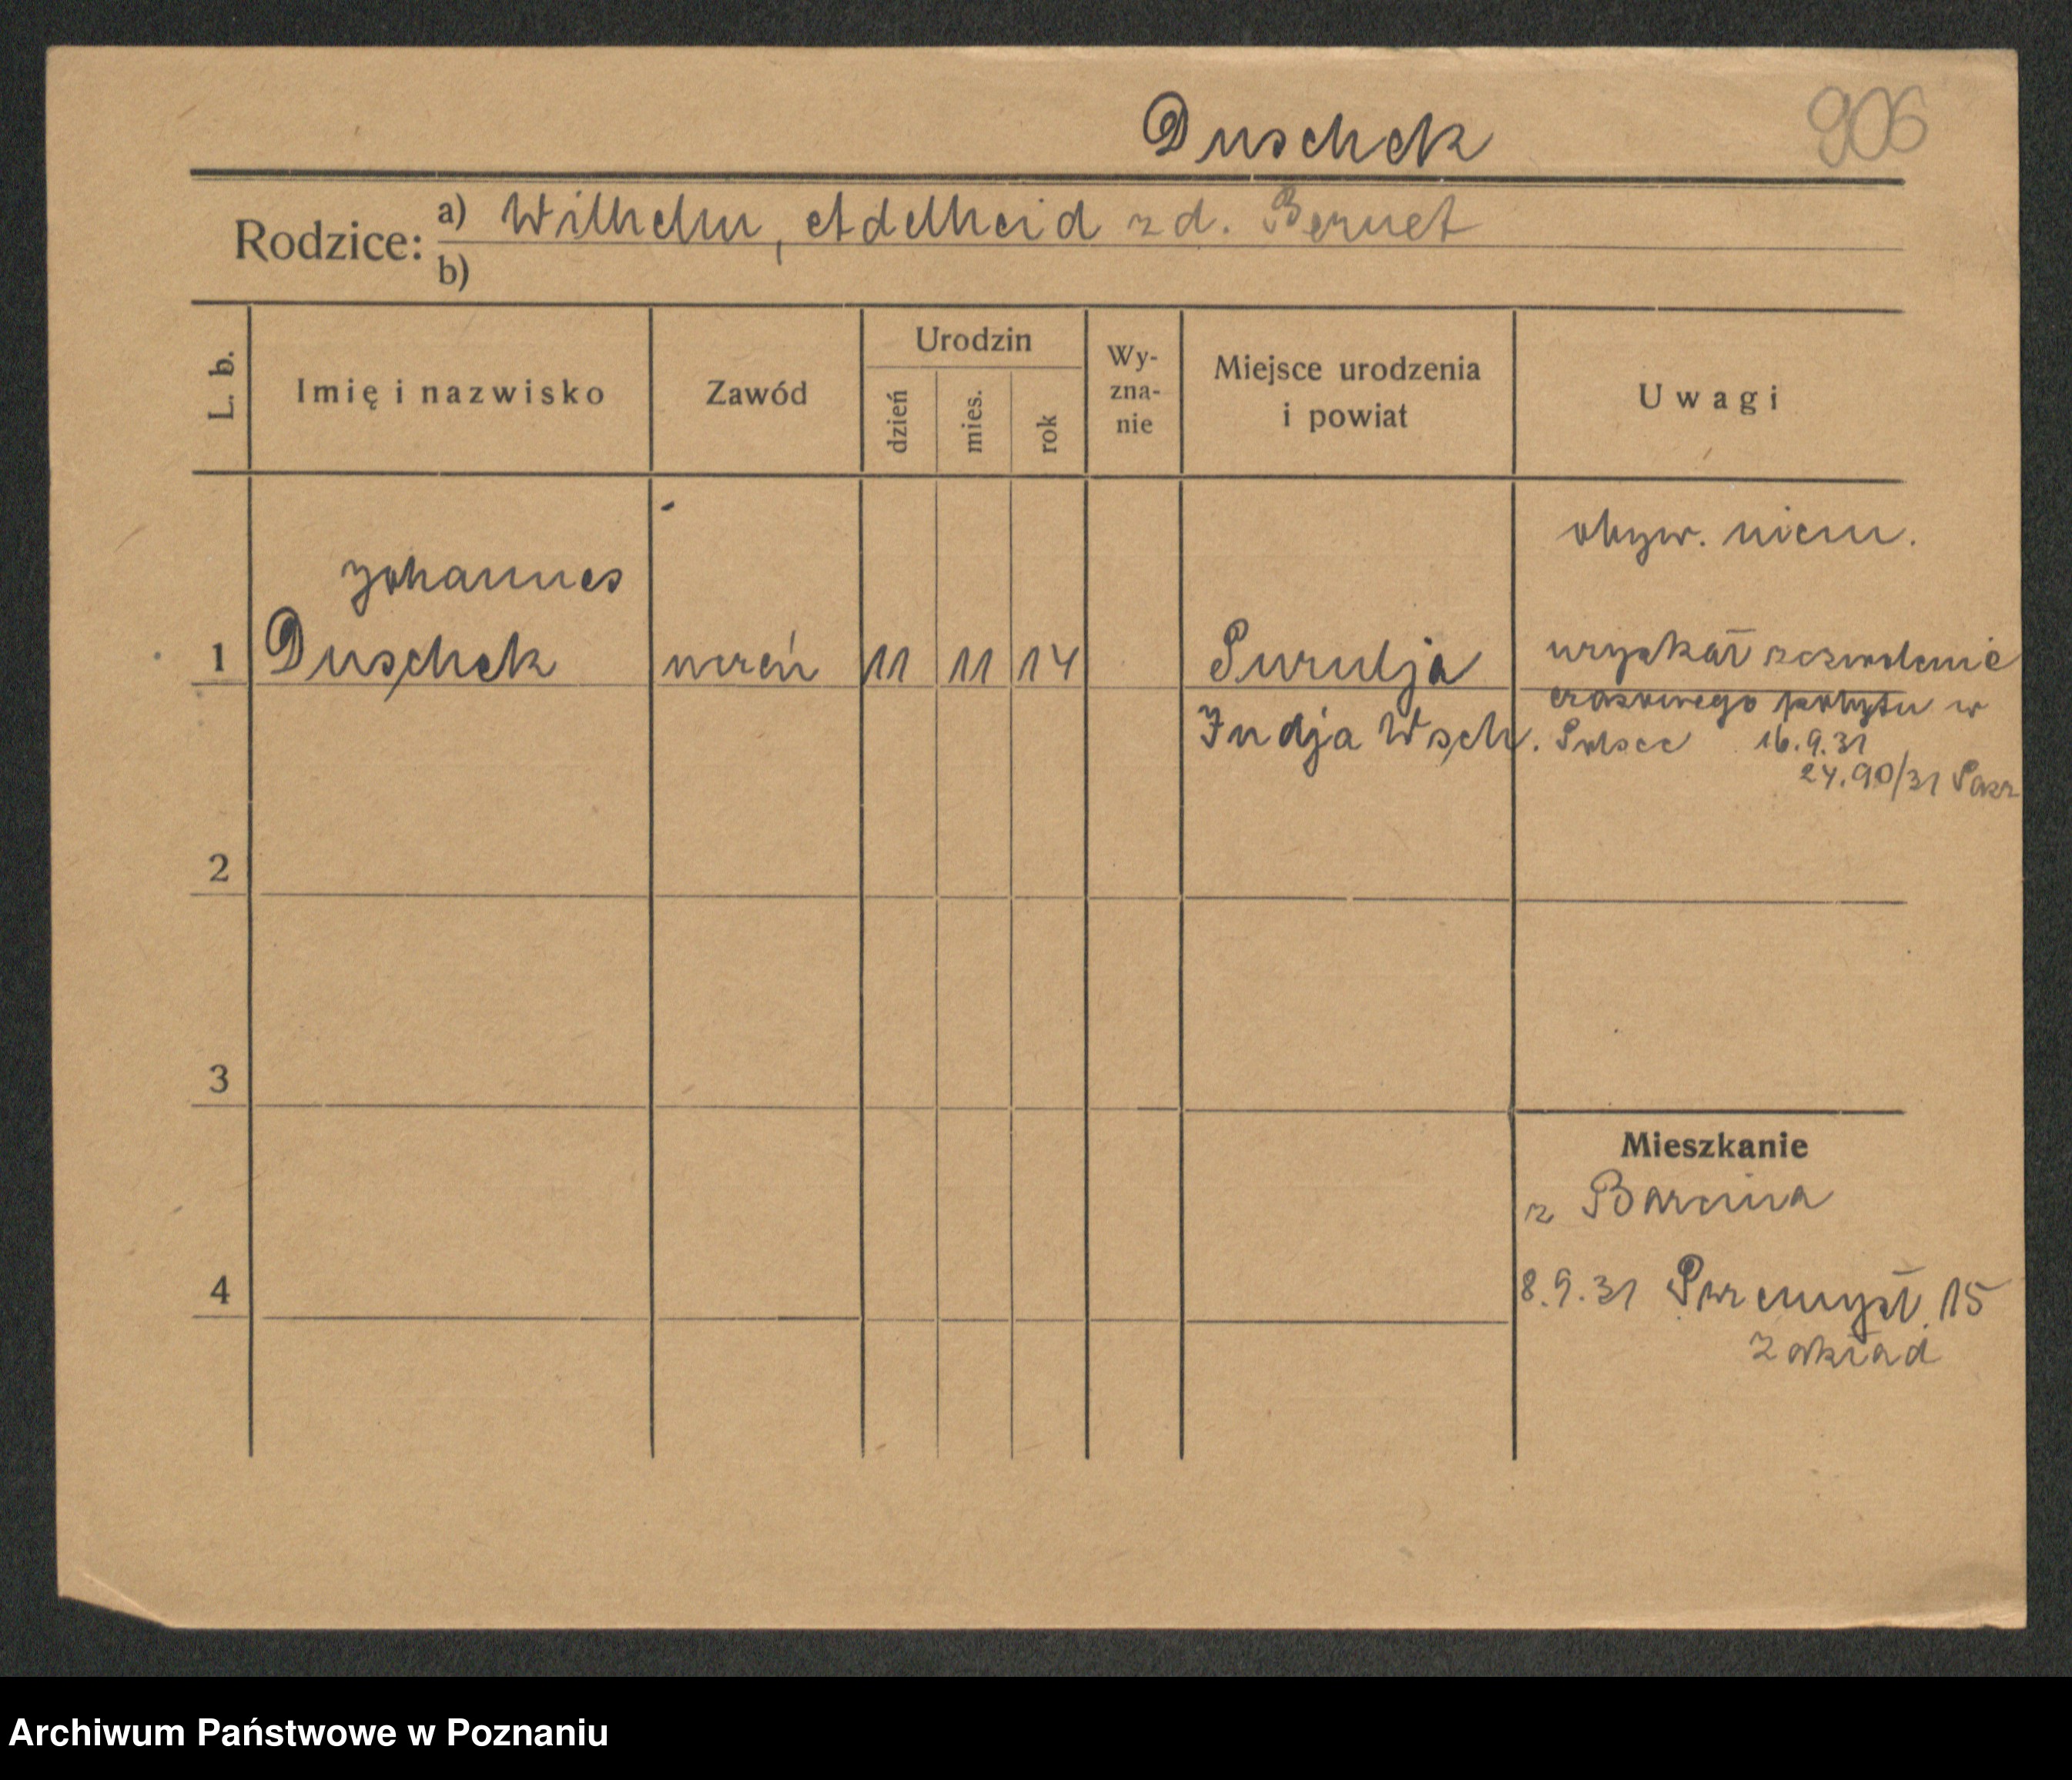 Duschek 906
Rodzice: a) Wilhelm, Adelheid zd. Bernet
b)
L. b. Imię i nazwisko Zawód Urodzin dzień mies. rok Wy-zna-nie Miejsce urodzenia i powiat Uwagi
obyw. niem.
Johannes
1 Duschek uczeń 11 11 14 Purulja uzyskał zezwolenie
czasowego pobytu w
Indja Wsch. Polsce 16.9.31
24.90/31 Pasz
2
3
Mieszkanie
z Barcina
4 8.9.31 Przemysł. 15
Zakład
Archiwum Państwowe w Poznaniu